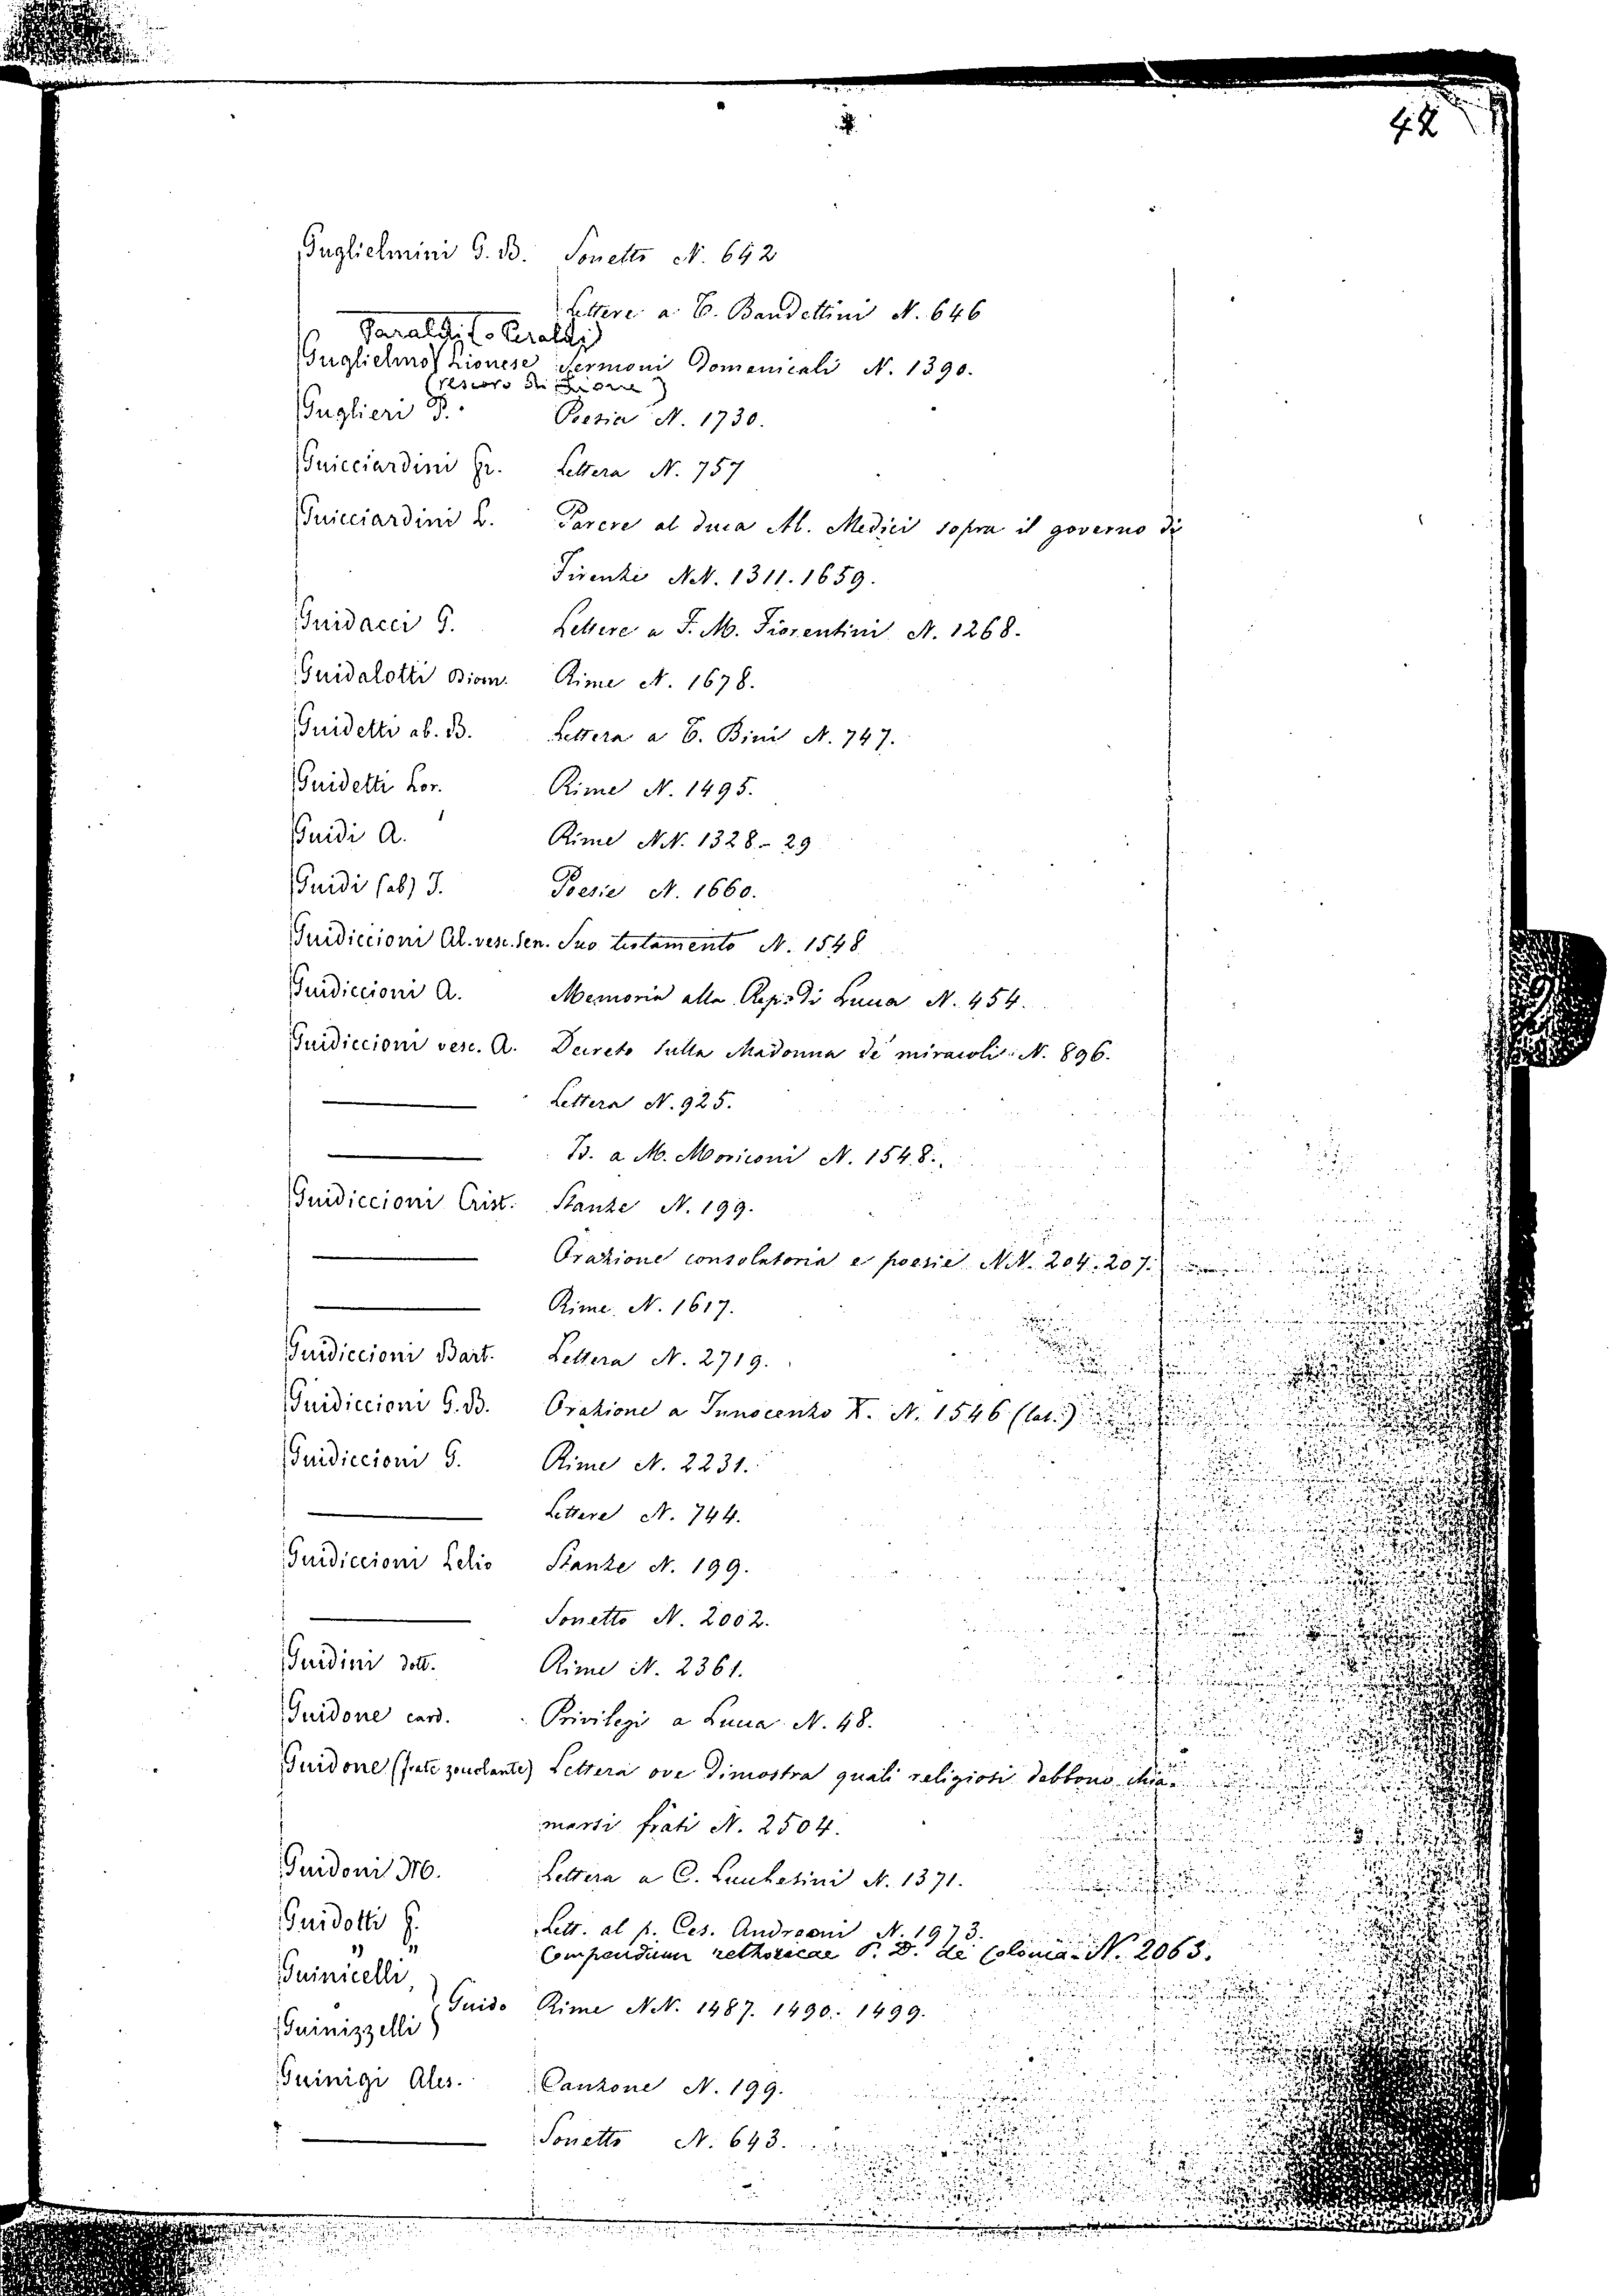 42
Guglielmini G. B. Sonetto N. 642
Lettere a T. Bandettini N. 646
Paraldi (o Peraldi)
Guglielmo Lionese Sermoni Domenicali N. 1390.
(vescovo di Lione)
Guglieri P. Poesia N. 1730.
Guicciardini Fr. Lettera N. 757
Guicciardini L. Parere al duca Al. Medici sopra il governo di
Firenze NN. 1311. 1659.
Guidacci G. Lettere a F. M. Fiorentini N. 1268.
Guidalotti Diom. Rime N. 1678.
Guidetti ab. B. Lettera a T. Bini N. 747.
Guidetti Lor. Rime N. 1495.
Guidi A. Rime NN. 1328-29
Guidi (ab) J. Poesie N. 1660.
Guidiccioni Al. vesc. Sen. Suo testamento N. 1548
Guidiccioni A. Memoria alla Rep. di Lucca N. 454.
Guidiccioni vesc. A. Decreto sulla Madonna de' miracoli N. 896.
Lettera N. 925.
B. a M. Moriconi N. 1548.
Guidiccioni Crist. Stanze N. 199.
Orazione consolatoria e poesie NN. 204. 207.
Rime N. 1617.
Guidiccioni Bart. Lettera N. 2719.
Guidiccioni G. B. Orazione a Innocenzo X. N. 1546 (lat.)
Guidiccioni G. Rime N. 2231.
Lettere N. 744.
Guidiccioni Lelio Stanze N. 199.
Sonetto N. 2002.
Guidini dott. Rime N. 2361.
Guidone card. Privilegi a Lucca N. 48.
Guidone (frate zoccolante) Lettera ove dimostra quali religiosi debbono chia-
marsi frati N. 2504.
Guidoni M. Lettera a C. Lucchesini N. 1371.
Guidotti F. Lett. al p. Ces. Andreoni N. 1973.
" " Compendium rethoricae P. D. de Colonia N. 2063.
Guinicelli,
Guido Rime NN. 1487. 1490. 1499.
Guinizzelli
Guinigi Ales. Canzone N. 199.
Sonetto N. 643.